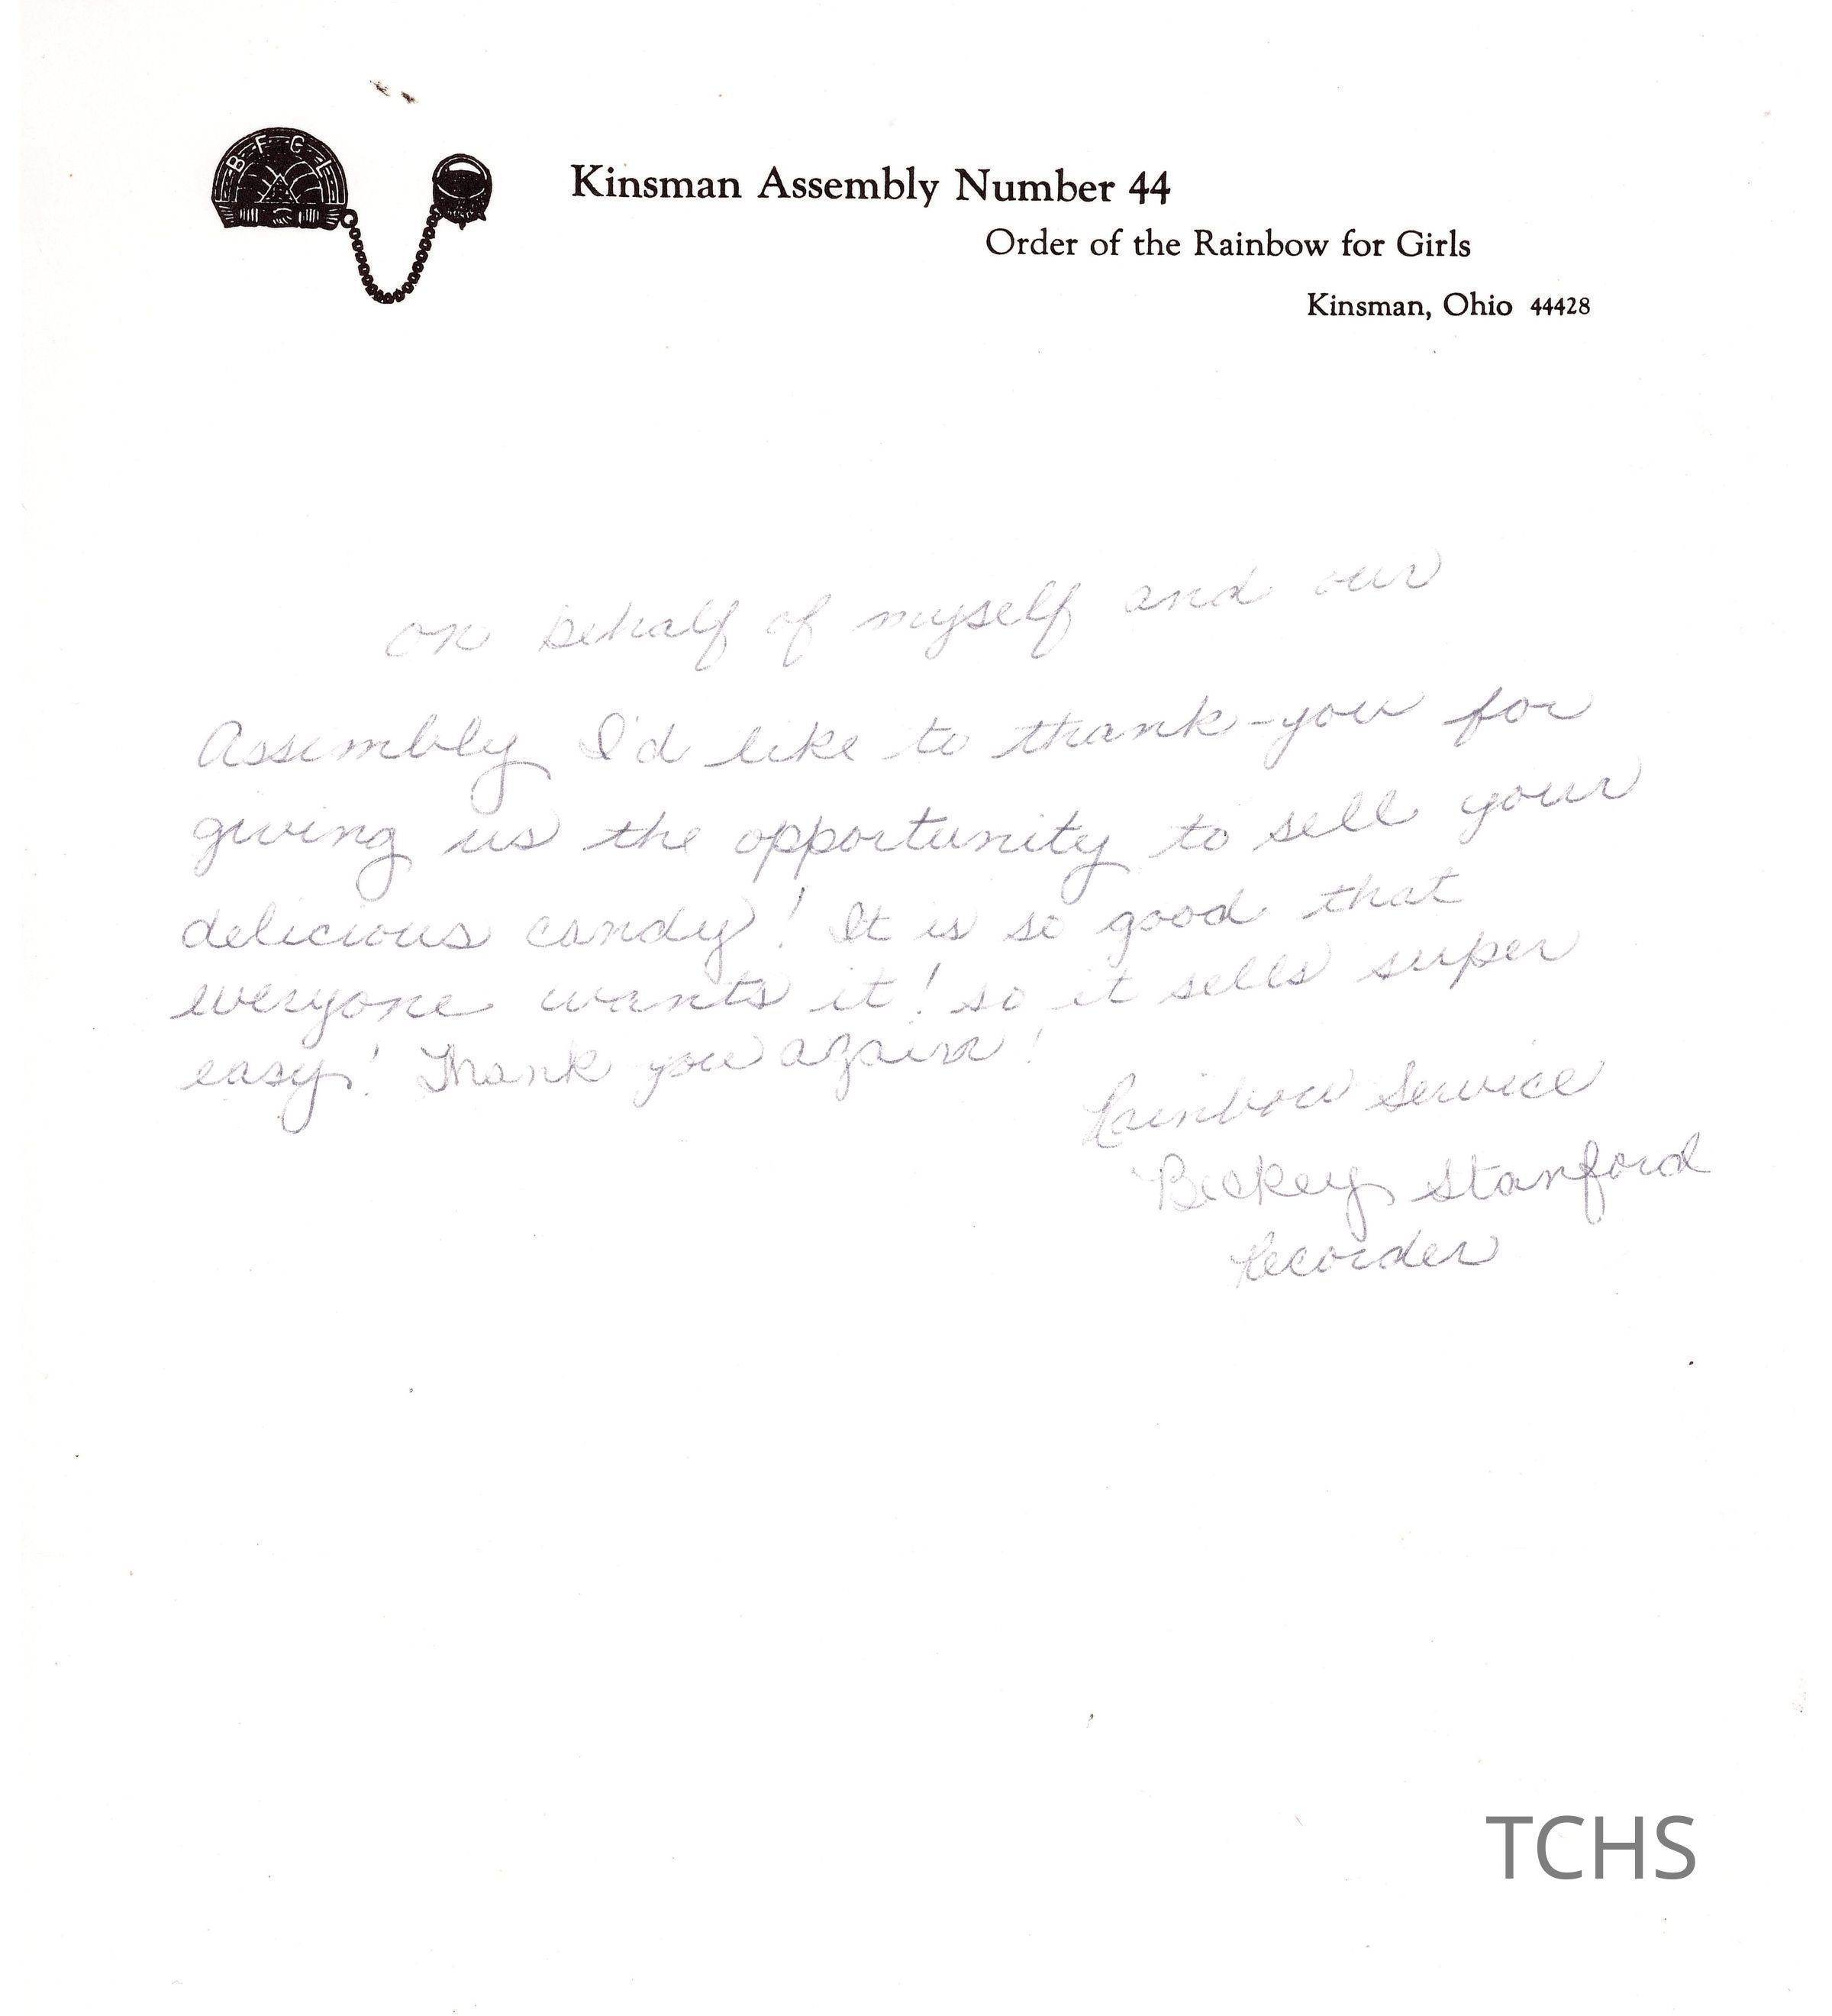 B F C L
Kinsman Assembly Number 44
Order of the Rainbow for Girls
Kinsman, Ohio 44428
on behalf of myself and our
Assembly I'd like to thank-you for
giving us the opportunity to sell your
delicious candy! It is so good that
everyone wants it! so it sells super
easy! Thank you again!
Rainbow Service
Beckey Stanford
Recorder
TCHS